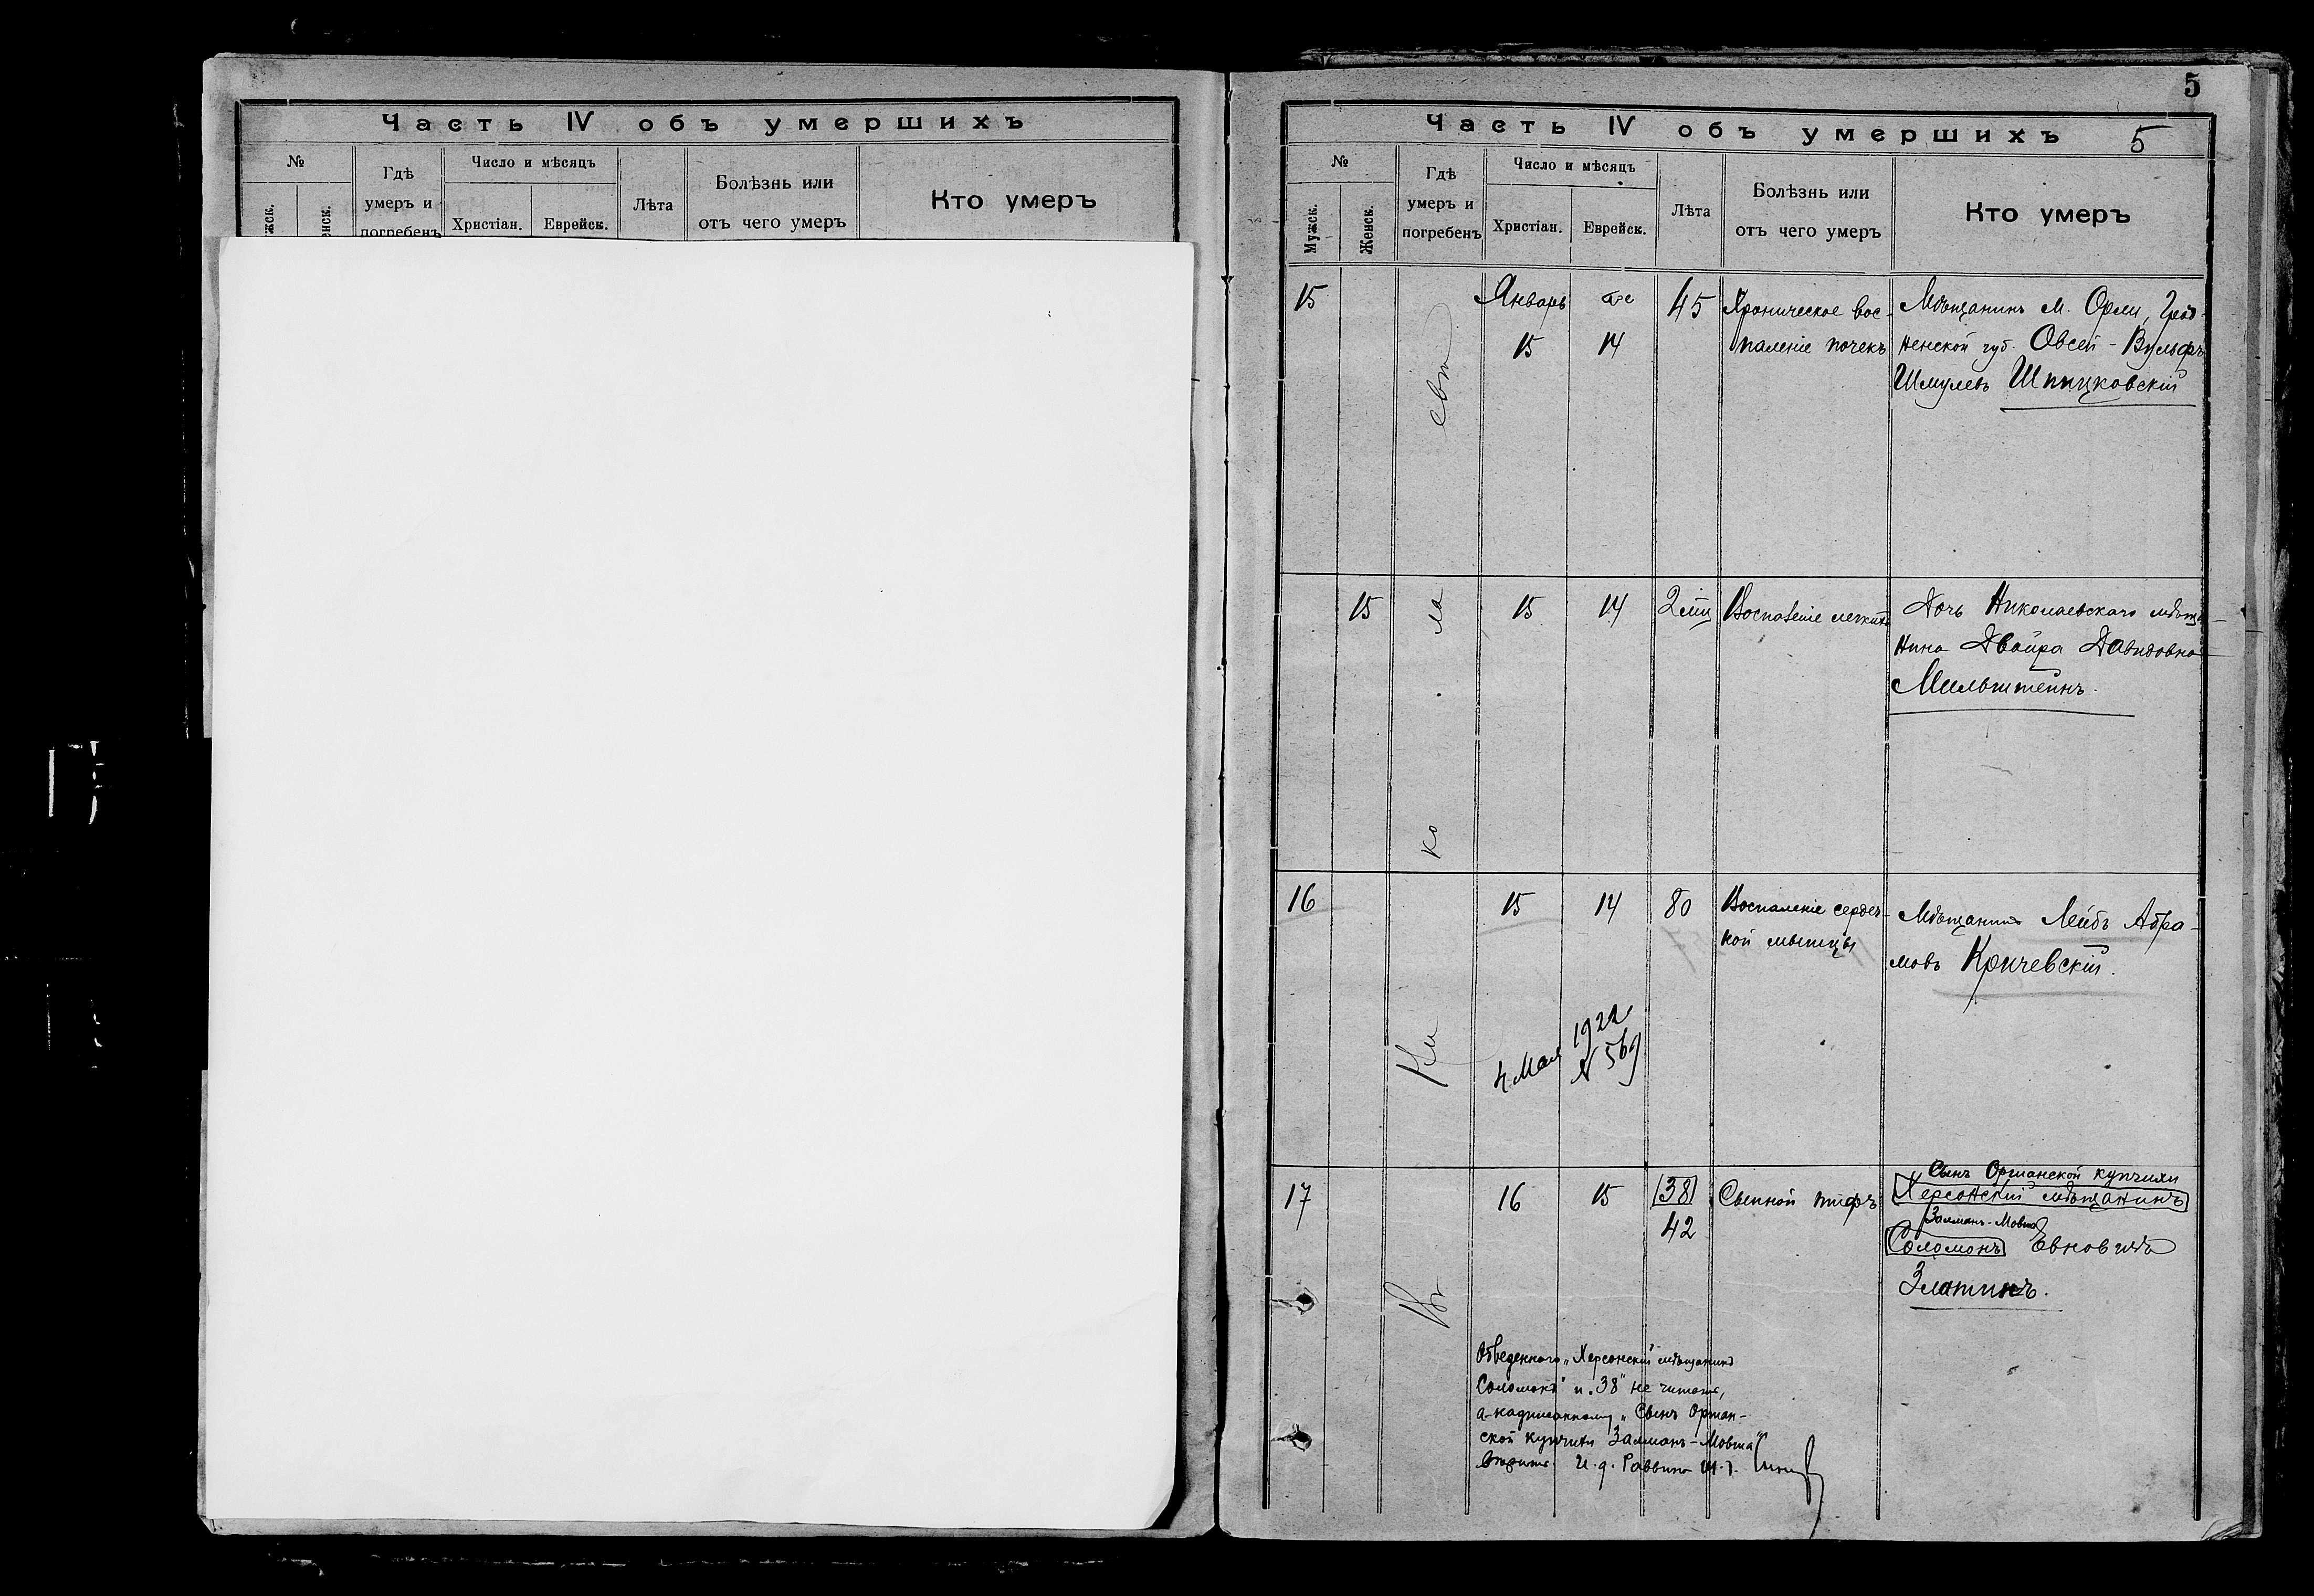 Часть IV объ умершихъ
№
Гдѣ умеръ и погребенъ
Число и мѣсяцъ
Христіан.
Еврейск.
Лѣта
Болѣзнь или отъ чего умеръ
Кто умеръ
5
Часть IV объ умершихъ
5
№
Мужск.
Женск.
Гдѣ умеръ и погребенъ
Число и мѣсяцъ
Христіан.
Еврейск.
Лѣта
Болѣзнь или отъ чего умеръ
Кто умеръ
15
Январь
15
14
45
Хроническое вос-
паленіе почекъ
Мѣщанинъ м. Орли, Грод-
ненской губ. Овсей-Вульфъ
Шмулевъ Шпицковскій
15
15
14
2 мѣс
Воспаленіе легкихъ
Дочь Николаевскаго мѣща-
нина Двойра Давидовна
Мильштейнъ.
16
15
14
80
Воспаленіе сердеч-
ной мышцы
Мѣщанинъ Лейбъ Абра-
мовъ Кричевскій.
4 Мая 1922
N 569
17
16
15
38
42
Сыпной тифъ
Сынъ Оршанской купчихи
Херсонскій мѣщанинъ
Залманъ-Мовша
Соломонъ Евновичъ
Златинъ.
Обведенного „Херсонскій мѣщанинъ
Соломонъ" и „38" не читать,
а надписанному „Сынъ Оршан-
ской купчихи Залманъ-Мовша"
вѣрить. И. д. Раввина
въ Николаевѣ